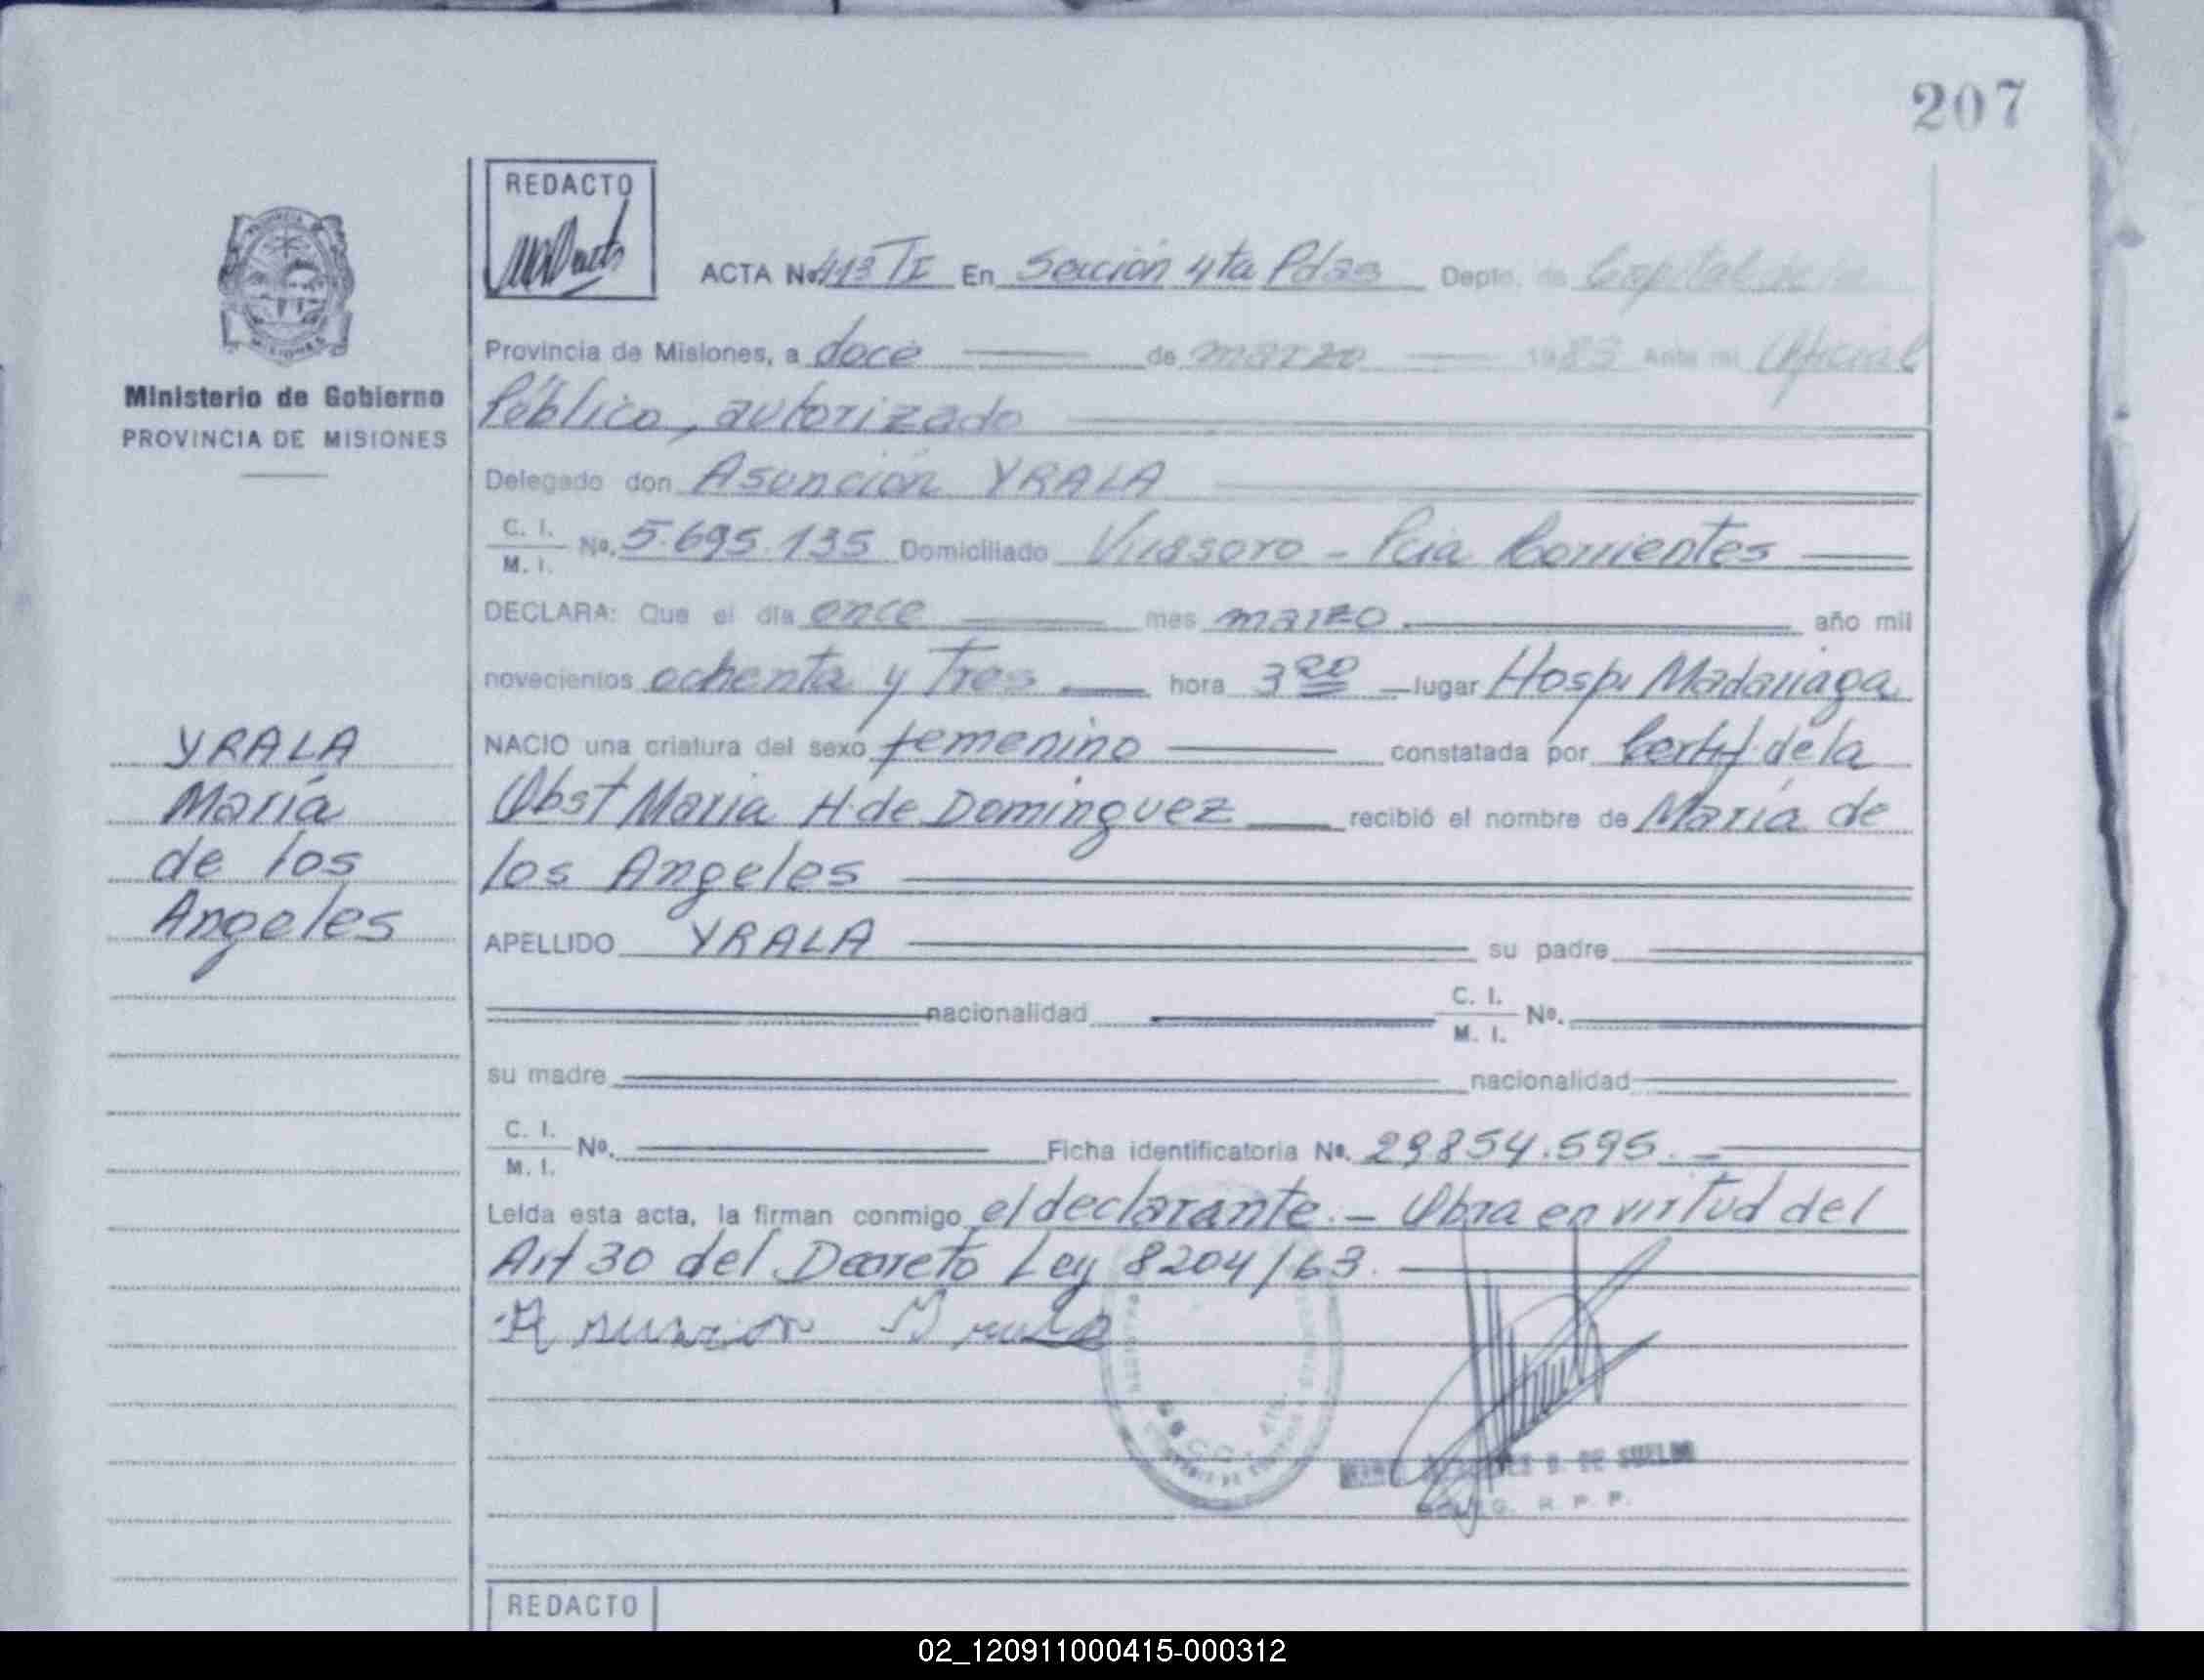 207
REDACTO
ACTA No 413 TI En Sección 4ta Pdas Depto. de Capital de la
Provincia de Misiones, a doce de marzo 1983 Ante mi Oficial
Público, autorizado
Delegado don Asunción YRALA
C. I.
M. I. No. 5.695.135 Domiciliado Virasoro - Pcia Corrientes
DECLARA: Que el día once mes marzo año mil
novecientos ochenta y Tres hora 3 00 lugar Hosp. Madariaga
NACIO una criatura del sexo femenino constatada por Certif de la
Obst Maria H de Dominguez recibió el nombre de María de
los Angeles
APELLIDO YRALA su padre
nacionalidad C. I.
M. I. No.
su madre nacionalidad
C. I.
M. I. No. Ficha identificatoria No. 29854.595.-
Leída esta acta, la firman conmigo el declarante.- Obra en virtud del
Art 30 del Decreto Ley 8204/63.
Ministerio de Gobierno
PROVINCIA DE MISIONES
YRALA
María
de los
Angeles
DE SUELDO
R. P. P.
REDACTO
02_120911000415-000312